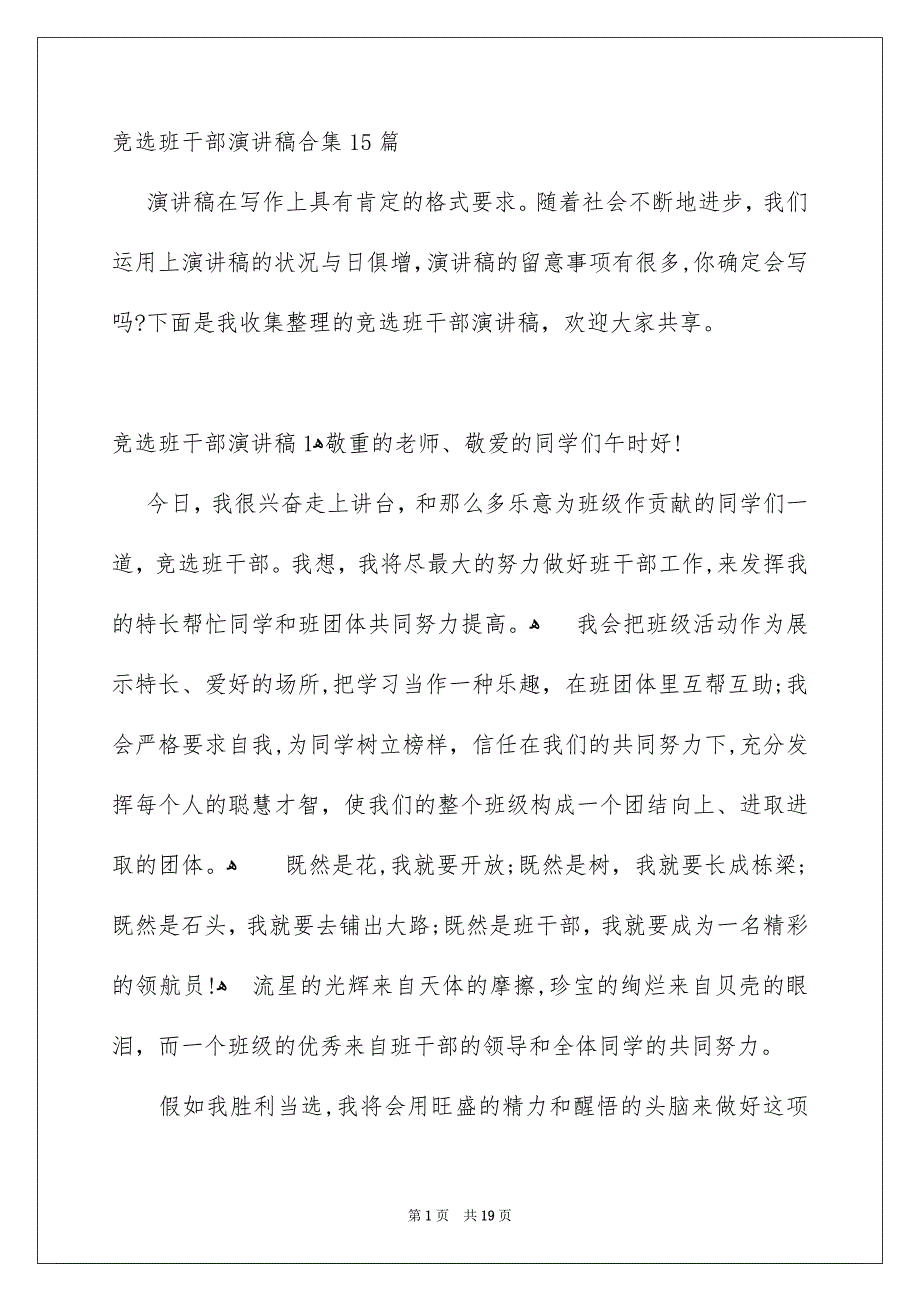 竞选班干部演讲稿合集 15 篇
演讲稿在写作上具有肯定的格式要求。随着社会不断地进步，我们
运用上演讲稿的状况与日俱增,演讲稿的留意事项有很多,你确定会写
吗?下面是我收集整理的竞选班干部演讲稿，欢迎大家共享。
竞选班干部演讲稿 1ﻫ敬重的老师、敬爱的同学们午时好!
今日，我很兴奋走上讲台，和那么多乐意为班级作贡献的同学们一
道，竞选班干部。我想，我将尽最大的努力做好班干部工作,来发挥我
的特长帮忙同学和班团体共同努力提高。ﻫ 我会把班级活动作为展
示特长、爱好的场所,把学习当作一种乐趣，在班团体里互帮互助;我
会严格要求自我,为同学树立榜样，信任在我们的共同努力下,充分发
挥每个人的聪慧才智，使我们的整个班级构成一个团结向上、进取进
取的团体。ﻫ 既然是花,我就要开放;既然是树，我就要长成栋梁;
既然是石头，我就要去铺出大路;既然是班干部，我就要成为一名精彩
的领航员!ﻫ 流星的光辉来自天体的摩擦,珍宝的绚烂来自贝壳的眼
泪，而一个班级的优秀来自班干部的领导和全体同学的共同努力。
假如我胜利当选,我将会用旺盛的精力和醒悟的头脑来做好这项
第 1 页 共 19 页